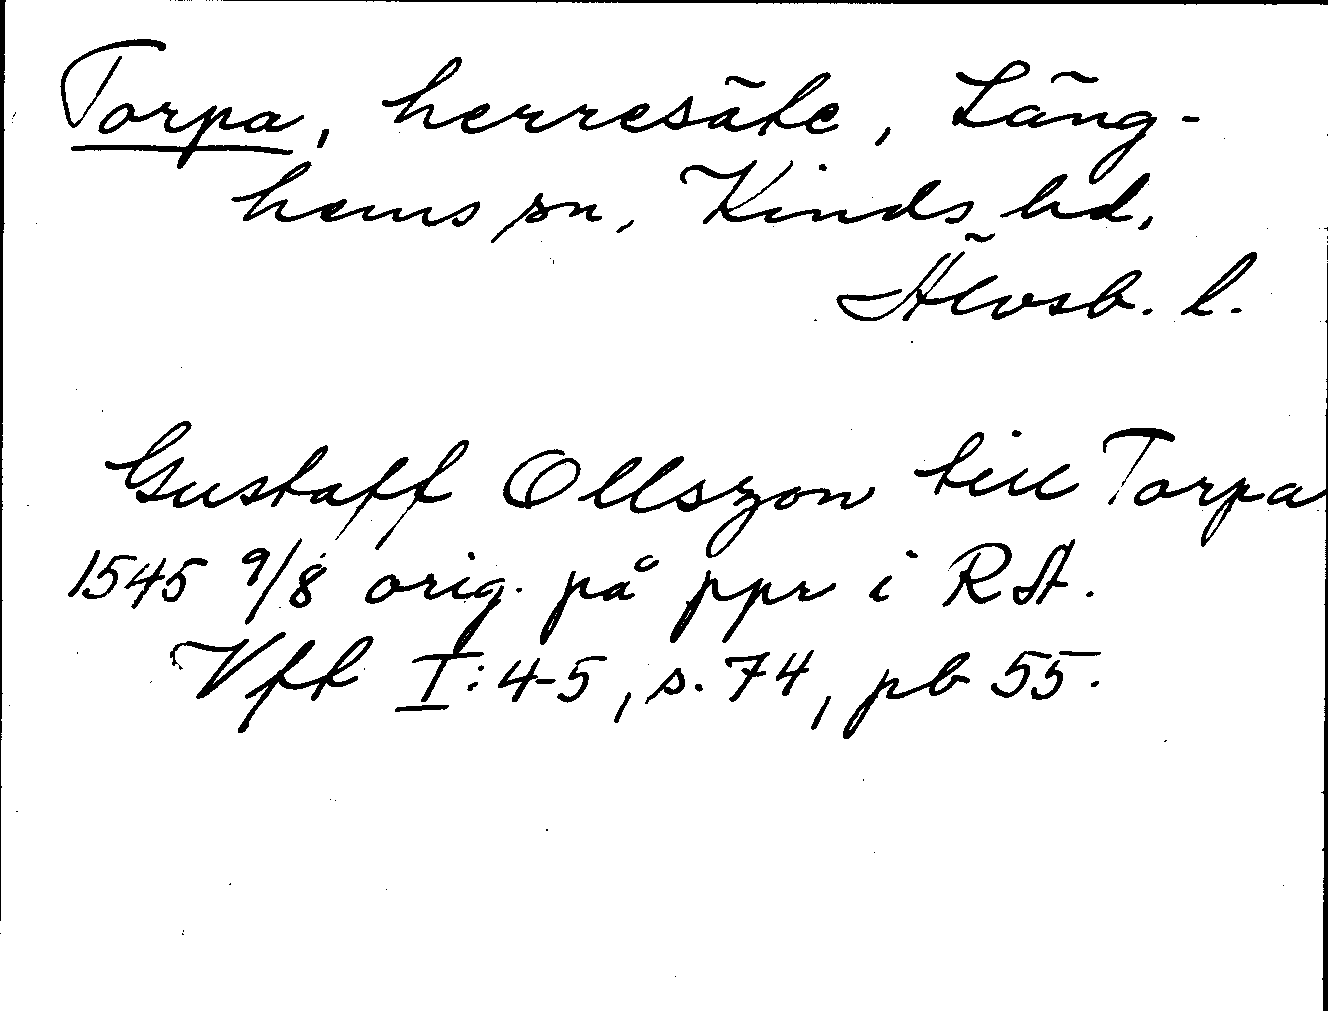 Torpa, herresäte, Läng-
hems sn, Kinds hd,
Älvsb. l.
Gustaff Ollszon till Torpa
1545 9/8 orig. på ppr i RA.
Vff I:4-5, s. 74, pb 55.